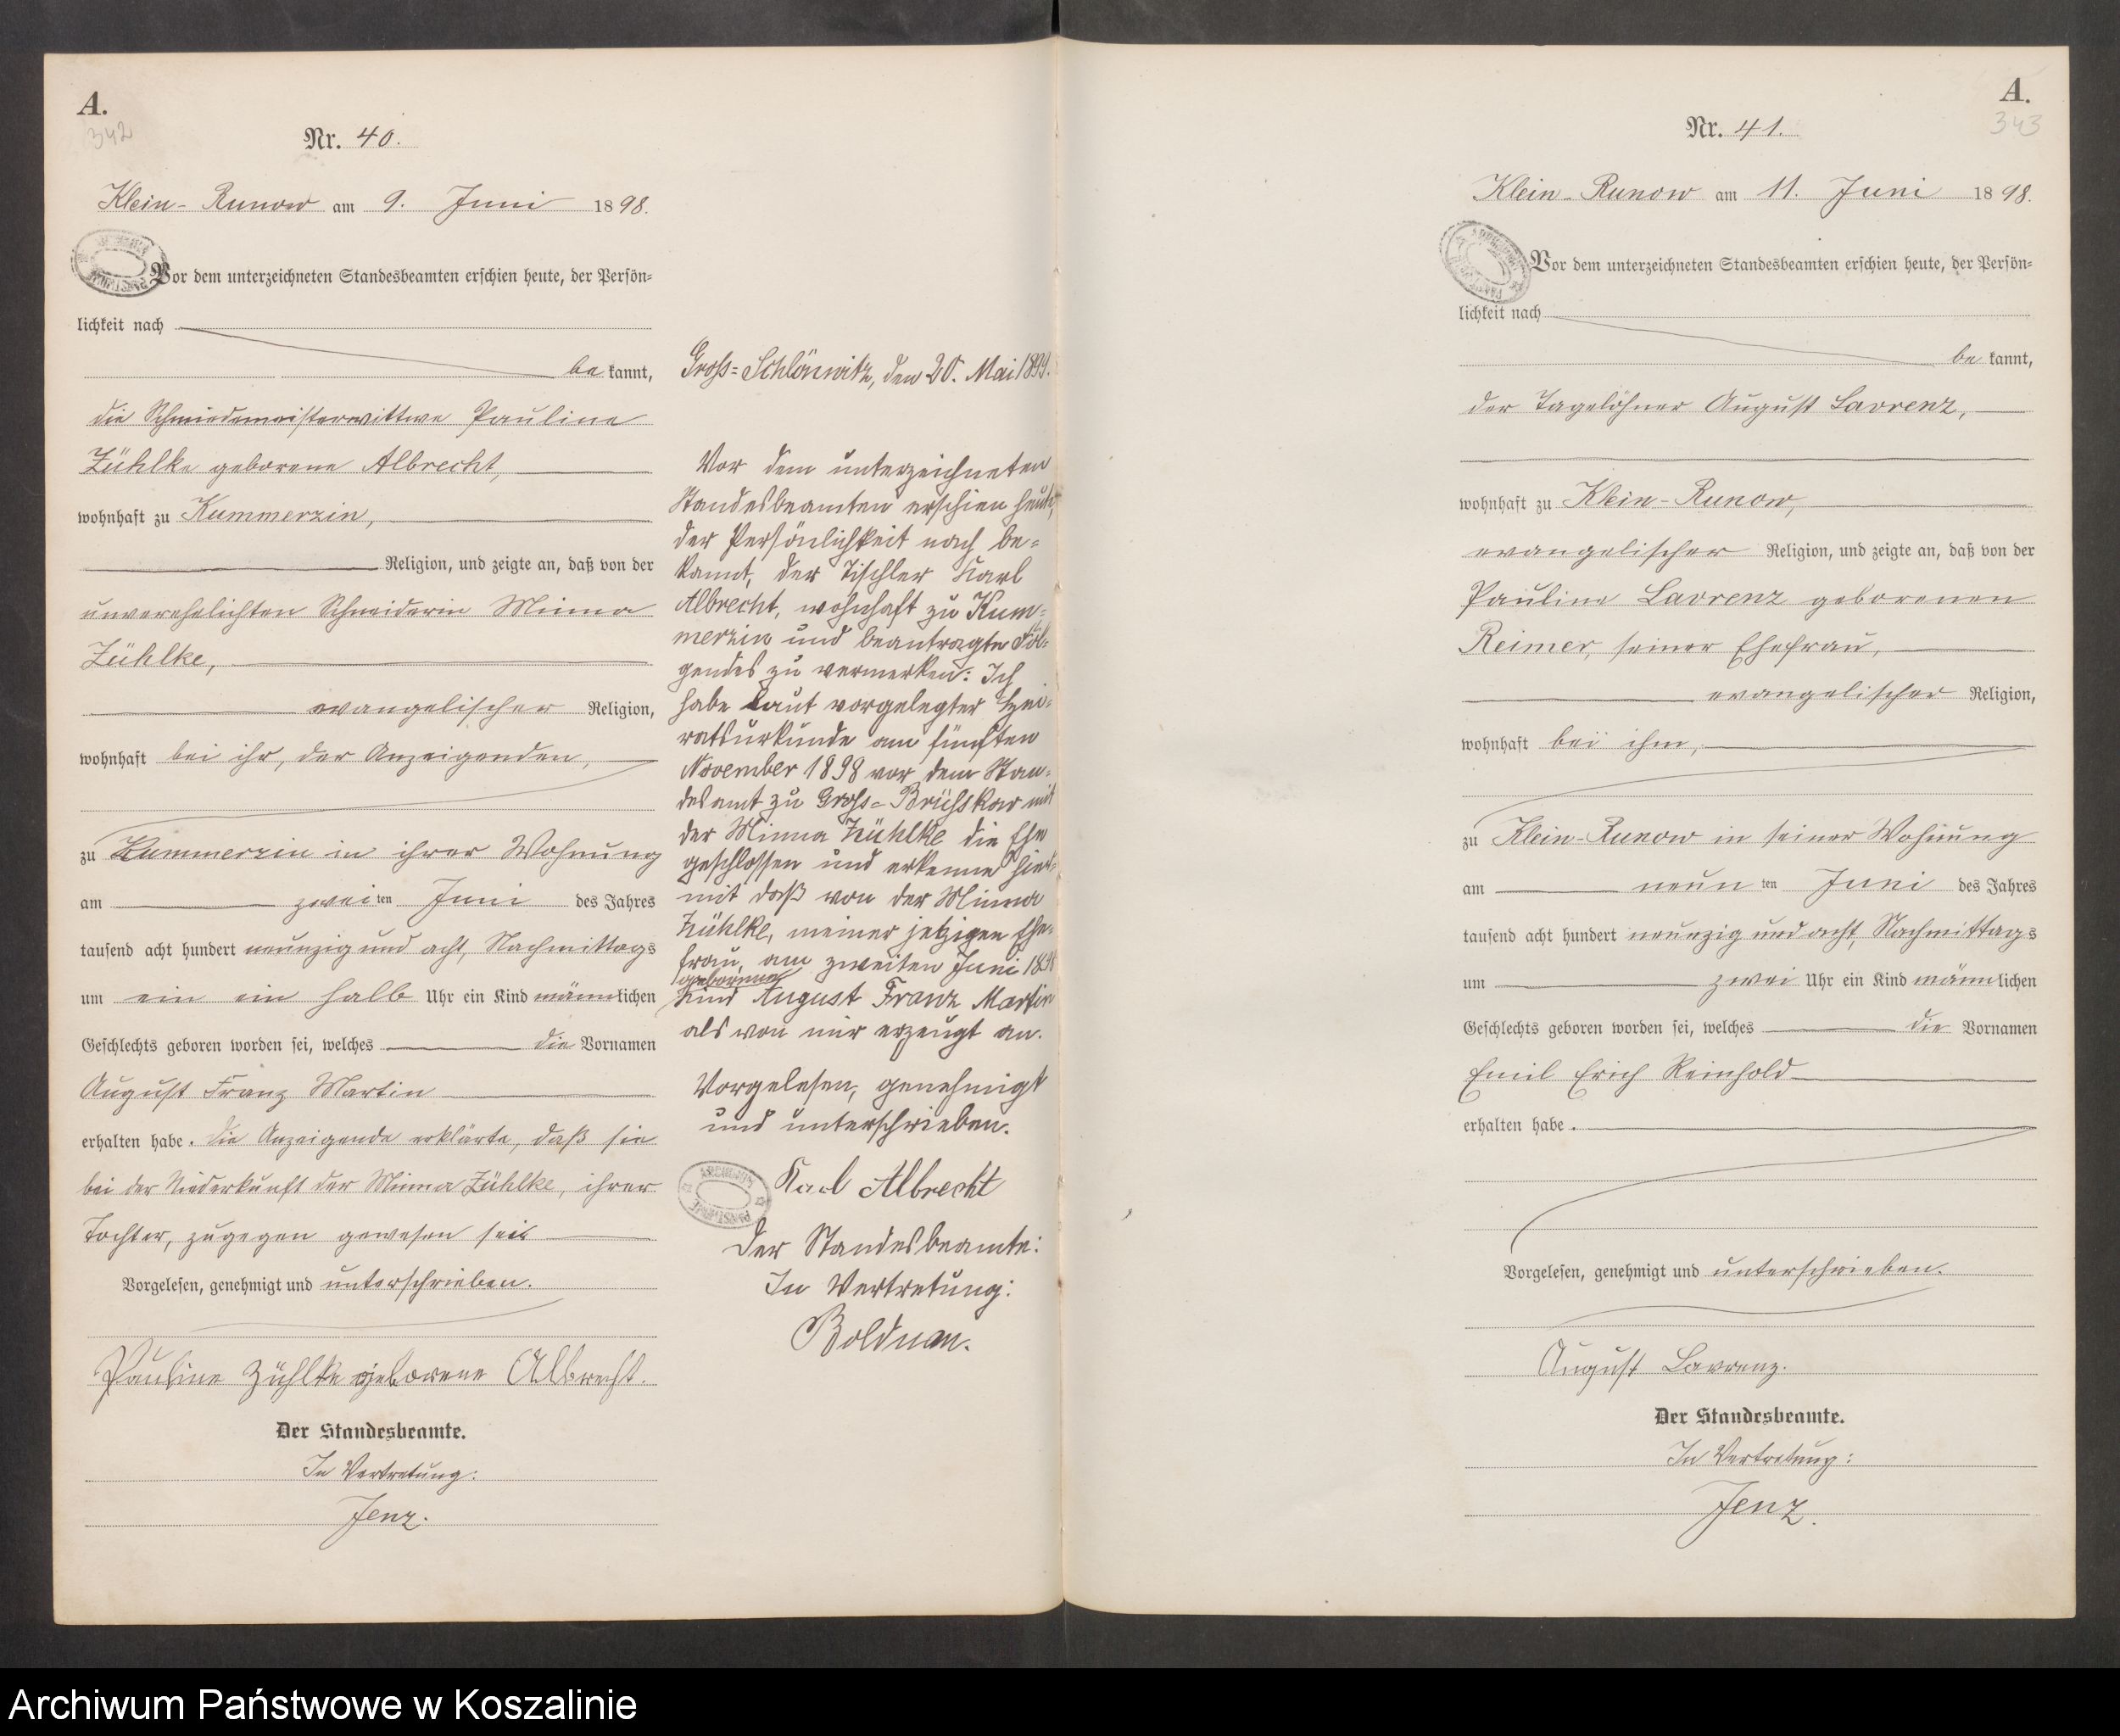 A.
342
Nr. 40.
Klein-Runow am 9. Juni 1898.
Vor dem unterzeichneten Standesbeamten erschien heute, der Persön=
lichkeit nach
be kannt,
die Schmiedemeisterwittwe Pauline
Zühlke geborene Albrecht,
wohnhaft zu Kummerzin,
Religion, und zeigte an, daß von der
unverehelichten Schneiderin Minna
Zühlke,
evangelischer Religion,
wohnhaft bei ihr, der Anzeigenden,
zu Kummerzin in ihrer Wohnung
am zweiten Juni des Jahres
tausend acht hundert neunzig und acht, Nachmittags
um ein ein halb Uhr ein Kind männlichen
Geschlechts geboren worden sei, welches die Vornamen
August Franz Martin
erhalten habe. Die Anzeigende erklärte, daß sie
bei der Niederkunft der Minna Zühlke, ihrer
Tochter, zugegen gewesen sei
Vorgelesen, genehmigt und unterschrieben.
Pauline Zühlke geborene Albrecht.
Der Standesbeamte.
In Vertretung:
Jenz.
Gross=Schlönwitz, den 20. Mai 1899.
Vor dem unterzeichneten
Standesbeamten erschien heute,
der Persönlichkeit nach be=
kannt, der Tischler Karl
Albrecht, wohnhaft zu Kum=
merzin und beantragte Fol=
gendes zu vermerken: Ich
habe laut vorgelegter Hei=
ratsurkunde am fünften
November 1898 vor dem Stan=
desamt zu Gross=Brüskow mit
der Minna Zühlke die Ehe
geschlossen und erkenne hier=
mit daß von der Minna
Zühlke, meiner jetzigen Ehe=
frau, am zweiten Juni 1898
geborene
Kind August Franz Martin
als von mir erzeugt an.
Vorgelesen, genehmigt
und unterschrieben.
Karl Albrecht
Der Standesbeamte:
In Vertretung:
Bolduan.
A.
343
Nr. 41.
Klein-Runow am 11. Juni 1898.
Vor dem unterzeichneten Standesbeamten erschien heute, der Persön=
lichkeit nach
be kannt,
der Tagelöhner August Lavrenz,
wohnhaft zu Klein-Runow,
evangelischer Religion, und zeigte an, daß von der
Pauline Lavrenz geborenen
Reimer, seiner Ehefrau,
evangelischer Religion,
wohnhaft bei ihm,
zu Klein-Runow in seiner Wohnung
am neunten Juni des Jahres
tausend acht hundert neunzig und acht, Nachmittags
um zwei Uhr ein Kind männlichen
Geschlechts geboren worden sei, welches die Vornamen
Emil Erich Reinhold
erhalten habe.
Vorgelesen, genehmigt und unterschrieben.
August Lavrenz.
Der Standesbeamte.
In Vertretung:
Jenz.
Archiwum Państwowe w Koszalinie